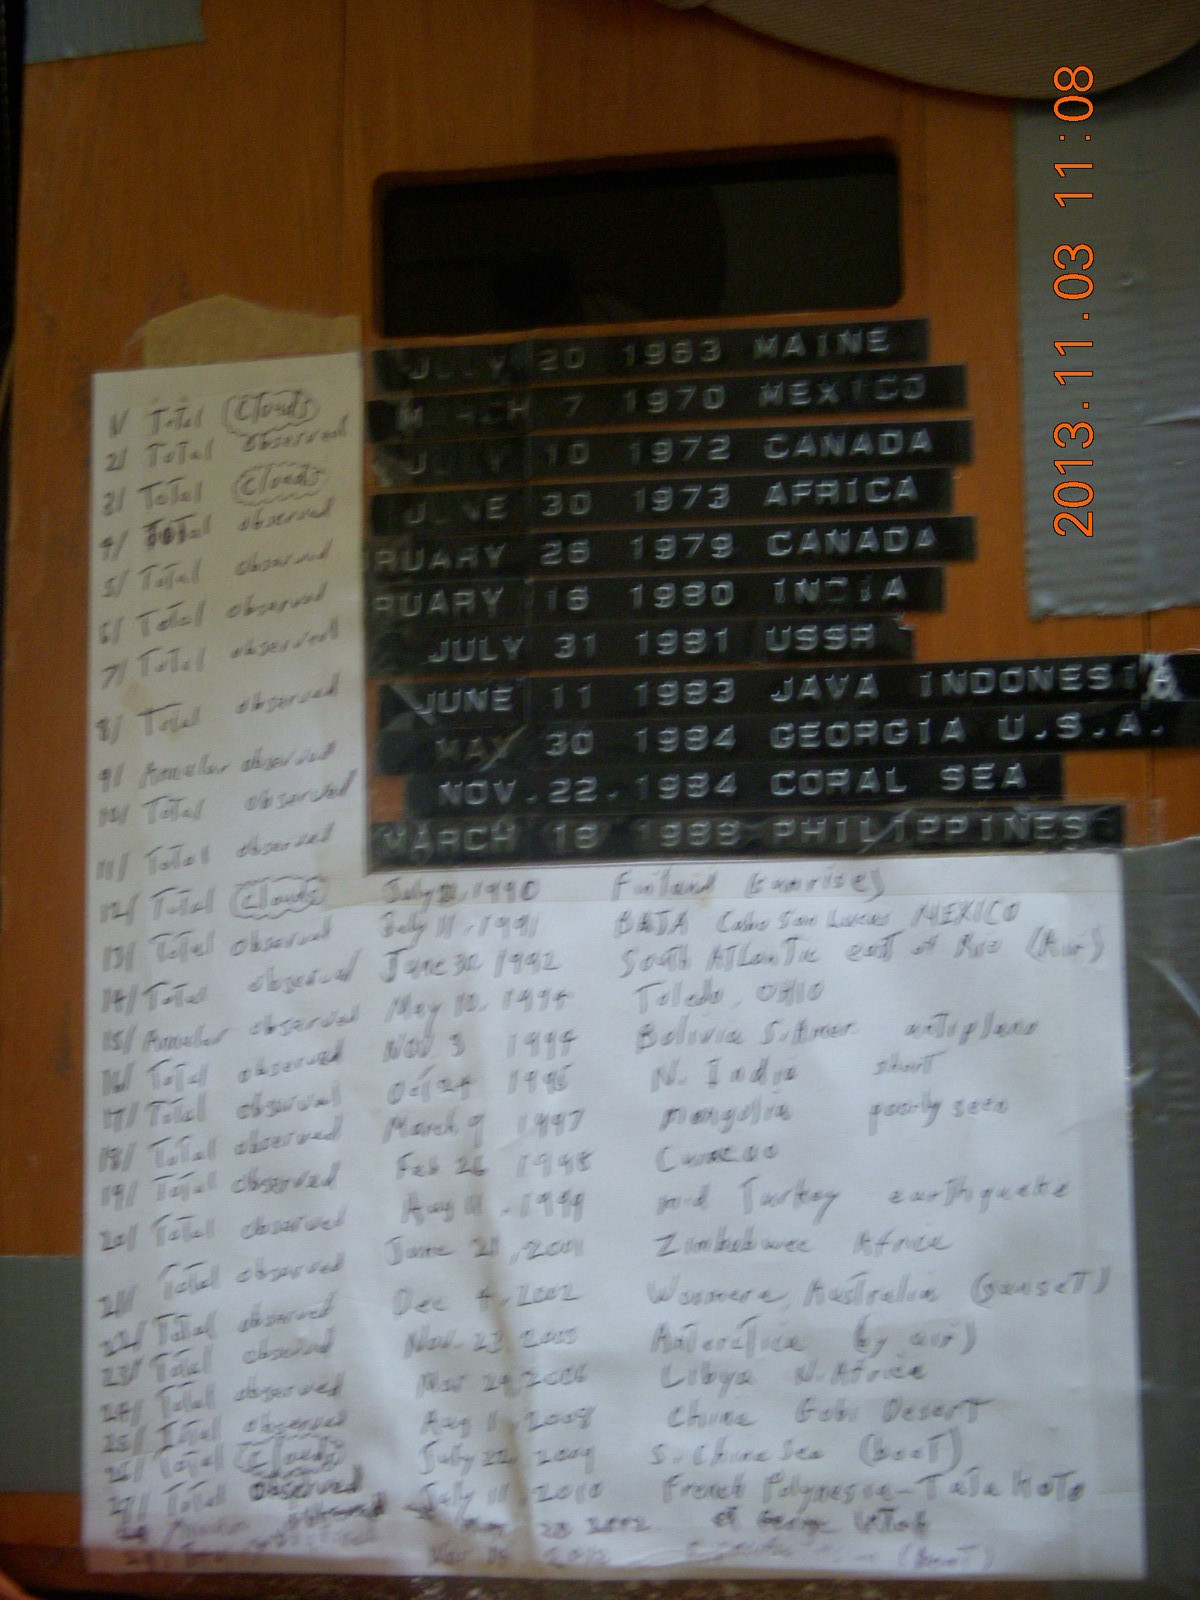 2013.11.03 11:08
1/ Total Clouds JULY 20 1963 MAINE
2/ Total observed MARCH 7 1970 MEXICO
3/ Total Clouds JULY 10 1972 CANADA
4/ Total observed JUNE 30 1973 AFRICA
5/ Total observed RUARY 26 1979 CANADA
6/ Total observed RUARY 16 1980 INDIA
7/ Total observed JULY 31 1981 USSR
8/ Total observed JUNE 11 1983 JAVA INDONESIA
9/ Annular observed MAY 30 1984 GEORGIA U.S.A.
10/ Total observed NOV.22.1984 CORAL SEA
11/ Total observed MARCH 18 1988 PHILIPPINES
12/ Total Clouds July 1990 Finland (sunrise)
13/ Total observed July 11, 1991 BAJA Cabo San Lucas MEXICO
14/ Total observed June 30 1992 South Atlantic east of Rio (Air)
15/ Annular observed May 10, 1994 Toledo, OHIO
16/ Total observed Nov 3 1994 Bolivia S. Amer antiplano
17/ Total observed Oct 24 1995 N. India short
18/ Total observed March 9 1997 Mongolia poorly seen
19/ Total observed Feb 26 1998 Curacao
20/ Total observed Aug 11, 1999 mid Turkey earthquake
21/ Total observed June 21, 2001 Zimbabwee Africa
22/ Total observed Dec 4, 2002 Woomera, Australia (sunset)
23/ Total observed Nov. 23, 2003 Antarctica (by air)
24/ Total observed Mar 29, 2006 Libya N. Africa
25/ Total observed Aug 1, 2008 China Gobi Desert
26/ Total Clouds July 22 2009 S. China Sea (boat)
27/ Total observed July 11, 2010 French Polynesia - Tatakoto
observed May 20 2012 St George Utah
Nov 2012 (boat)